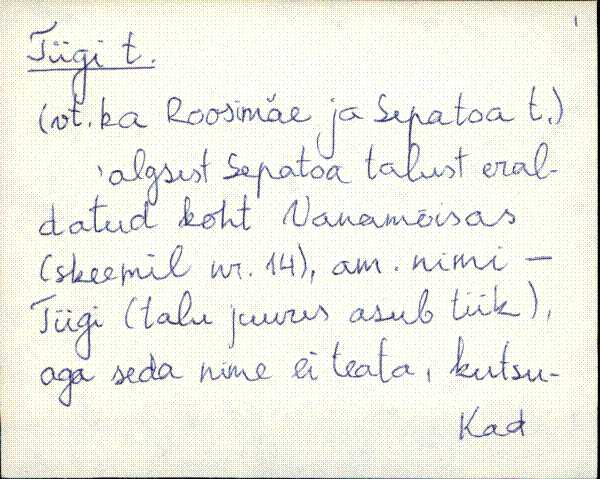 1
Tiigi t.
(vt. ka Roosimäe ja Sepatoa t.)
'algsest Sepatoa talust eral-
datud koht Vanamõisas
(skeemil nr. 14), am. nimi –
Tiigi (talu juures asub tiik),
aga seda nime ei teata, kutsu-
Kad